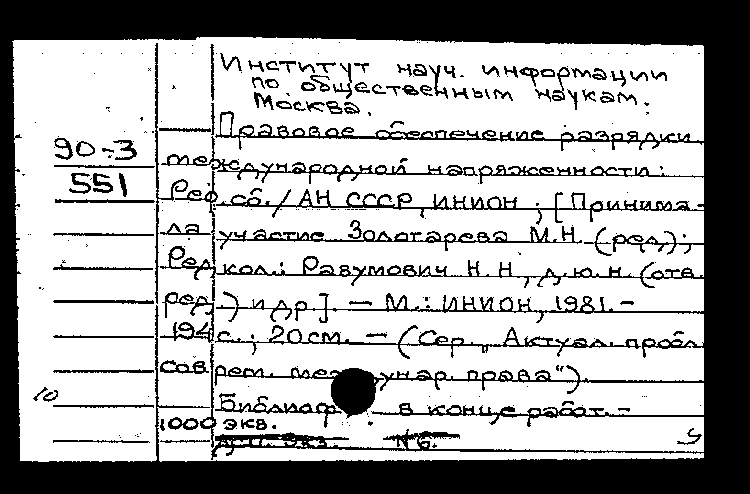 Институт науч. информации
по общественным наукам.
Москва.
Правовое обеспечение разрядки
90-3
международной напряженности:
551
Реф. сб. / АН СССР, ИНИОН ; [Принима-
ла участие Золотарева М.Н. (ред.);
Ред.кол.: Разумович Н.Н., д.ю.н. (отв.
ред.) и др.]. — М.: ИНИОН, 1981. -
194 с. ; 20 см. — (Сер. „Актуал. пробл.
соврет. междунар. права").
10
Библиогр. в конце работ. -
1000 экз.
экз. №6.